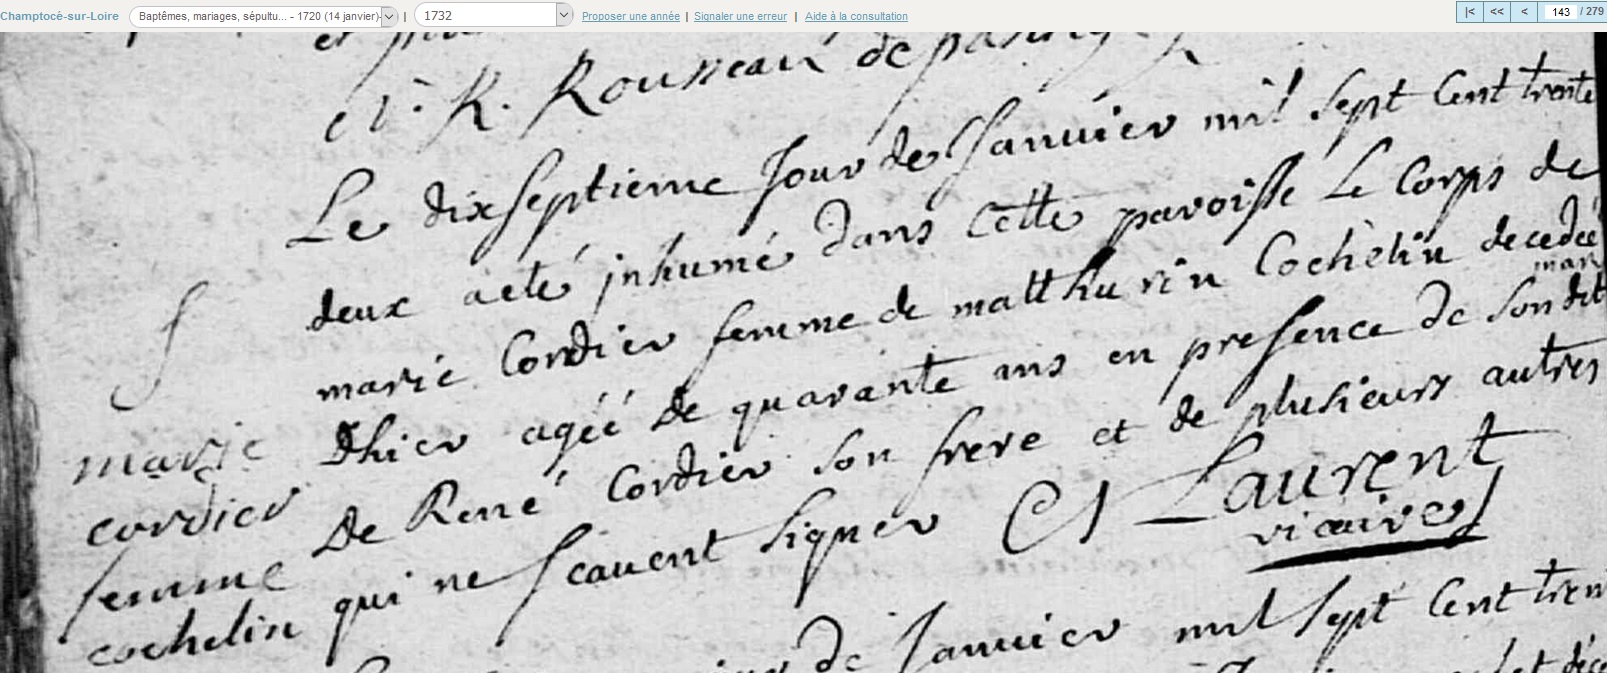 Champtocé-sur-Loire Baptêmes, mariages, sépultu... - 1720 (14 janvier)- | 1732 Proposer une année | Signaler une erreur | Aide à la consultation |< << < 143 / 279
R. Rousseau de
Le dixseptieme Jour de Janvier mil sept Cent trente
deux a eté jnhumé dans Cette paroisse Le Corps de
marie Cordier femme de matthurin Cochelin decedée
mari
Dhier agéé De quarante ans en presence de son dit
De René Cordier son frere et de plusieurs autres
qui ne scauent signer C Laurent
vicaire
S
marie
cordier
femme
cochelin
de Janvier mil sept Cent tren